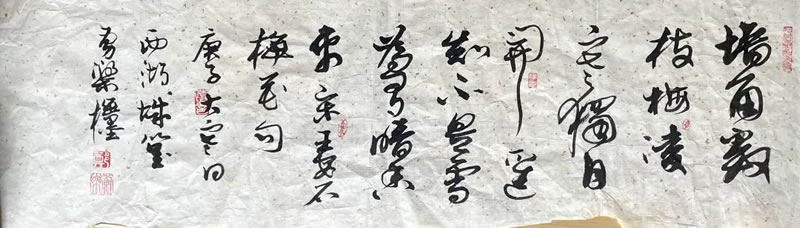 墙角数
枝梅凌
寒獨自
開遥
知不是雪
為有暗香
来宋王安石
梅花句
庚子大寒日
西湖